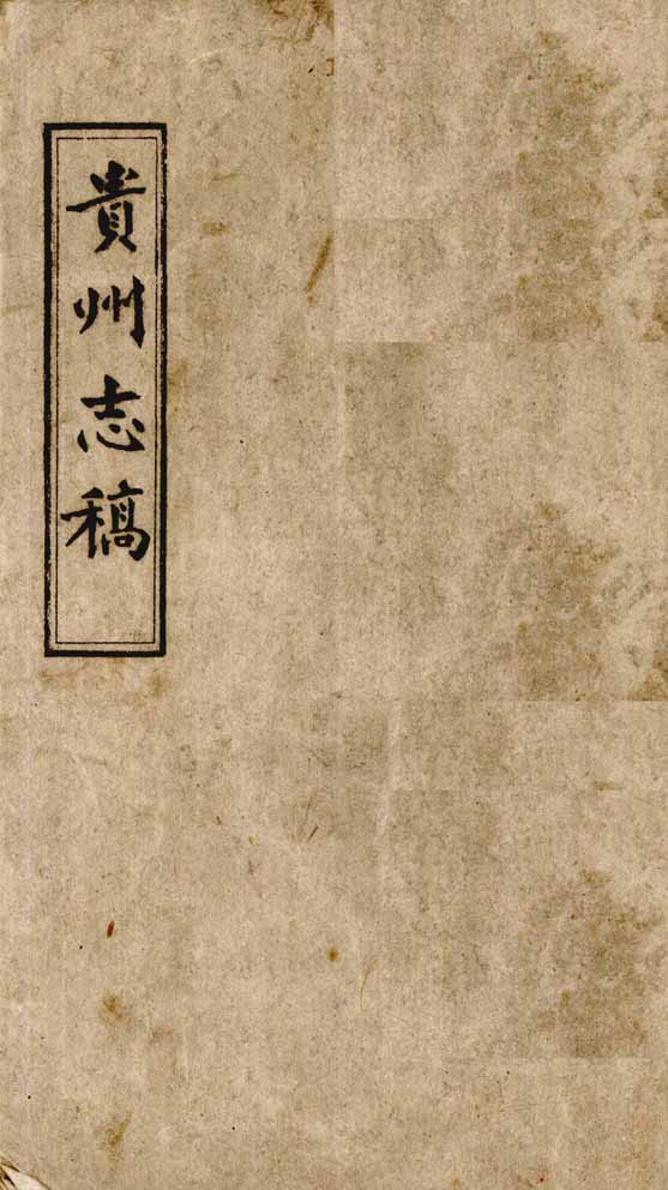 貴州志稿